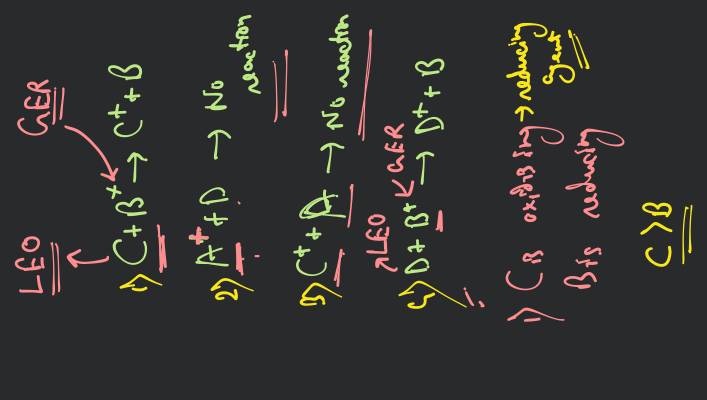 LEO GER
1) C + B⁺ → C⁺ + B
2) A⁺ + D → No reaction
3) C⁺ + A → No reaction
LEO GER
4) D + B⁺ → D⁺ + B
1) C is oxidizing → reducing agent
B+ is reducing
C > B